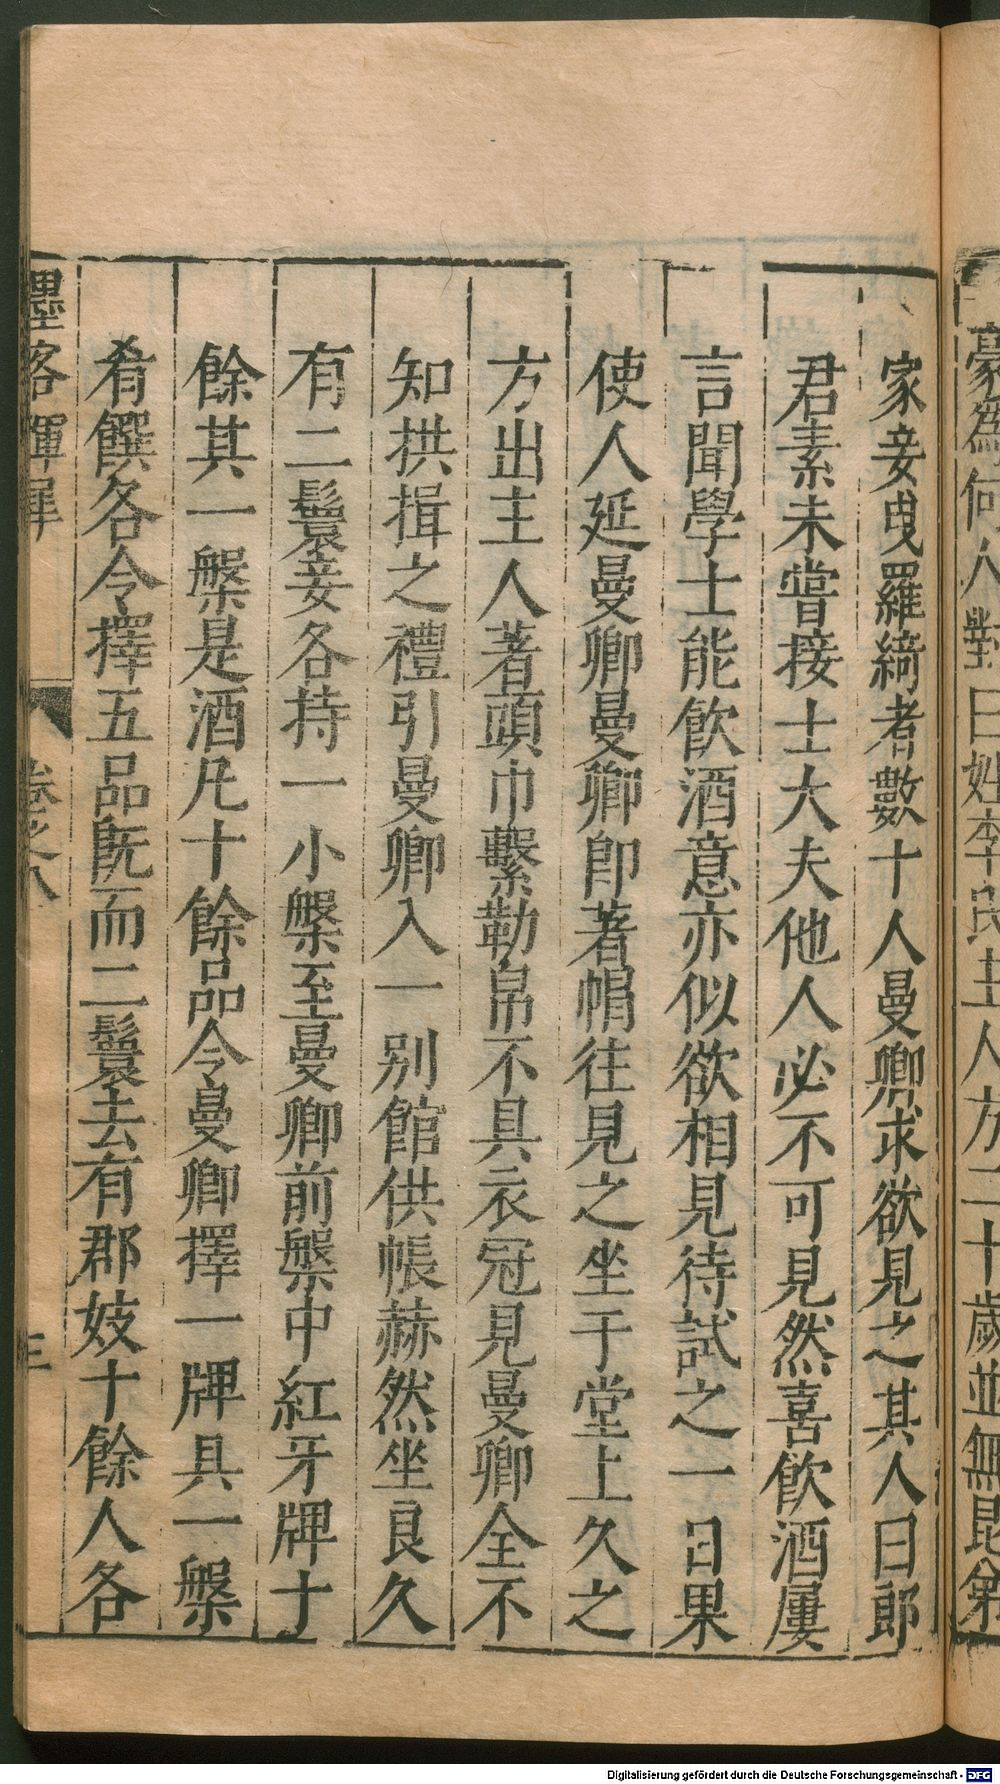 豪爲何人對曰姓李氏主人方二十歲並無昆弟
家妾曵羅綺者數十人曼卿求欲見之其人曰郎
君素未嘗接士大夫他人必不可見然喜飲酒屢
言聞學士能飲酒意亦似欲相見待試之一日果
使人延曼卿曼卿卽著帽往見之坐于堂上久之
方出主人著頭巾繫勒帛不具衣冠見曼卿全不
知拱揖之禮引曼卿入一別館供帳赫然坐良久
有二鬟妾各持一小槃至曼卿前槃中紅牙牌十
餘其一槃是酒凡十餘品令曼卿擇一牌具一槃
肴饌各令擇五品旣而二鬟去有郡妓十餘人各
墨客揮犀
卷之八
三
Digitalisierung gefördert durch die Deutsche Forschungsgemeinschaft - DFG